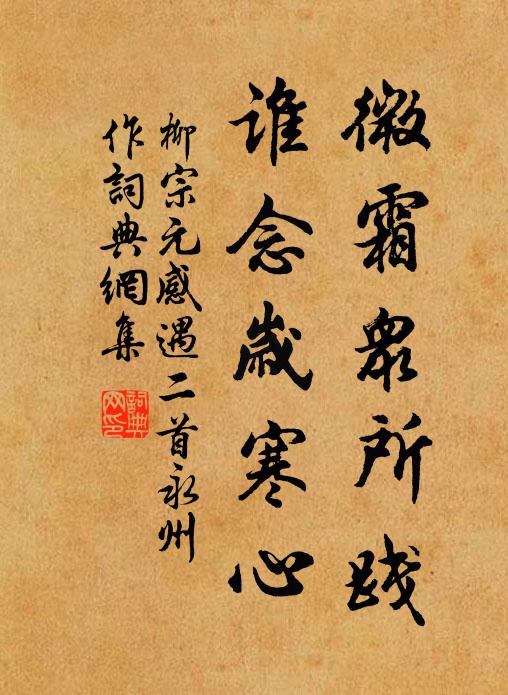 微霜眾所踐
誰念歲寒心
柳宗元感遇二首永州
作詞典網集
詞典網印